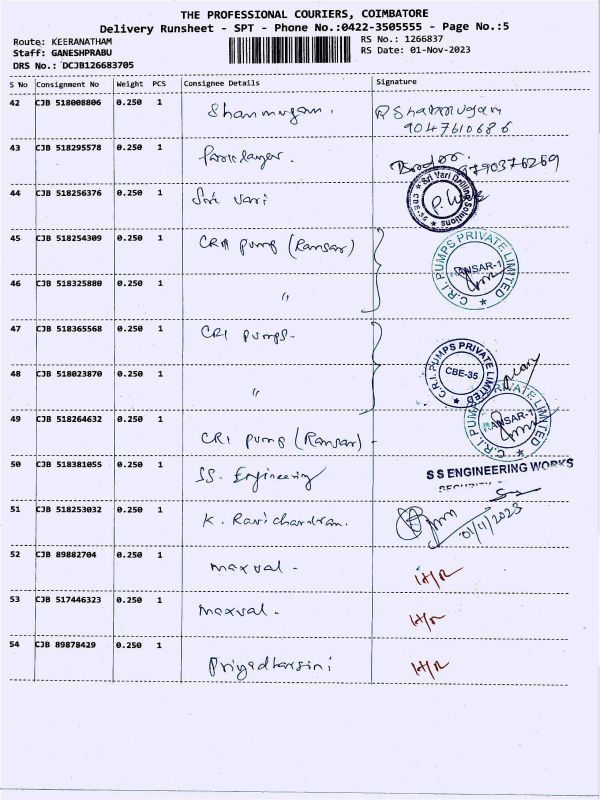 THE PROFESSIONAL COURIERS, COIMBATORE
Delivery Runsheet - SPT - Phone No.:0422-3505555 - Page No.:5
Route: KEERANATHAM RS No.: 1266837
Staff: GANESHPRABU RS Date: 01-Nov-2023
DRS No.: DCJB126683705
S No Consignment No Weight PCS Consignee Details Signature
42 CJB 518008806 0.250 1 Shanmugam. R Shanmugam
9047610686
43 CJB 518295578 0.250 1
44 CJB 518256376 0.250 1 Sri vari Sri Vari Drilling Solutions
45 CJB 518254309 0.250 1 CRI pump (Ransar) C.R.I. PUMPS PRIVATE LIMITED RANSAR-1
46 CJB 518325880 0.250 1 "
47 CJB 518365568 0.250 1 CRI pumps.
48 CJB 518023870 0.250 1 " C.R.I. PUMPS PRIVATE LIMITED CBE-35
49 CJB 518264632 0.250 1 CRI pump (Ransar) - C.R.I. PUMPS PRIVATE LIMITED RANSAR-1
50 CJB 518381055 0.250 1 SS. Engineering S S ENGINEERING WORKS
SECURITY
51 CJB 518253032 0.250 1 K. Ravichandran. 01/11/2023
52 CJB 89882704 0.250 1 maxval - H/R
53 CJB 517446323 0.250 1 maxval - H/R
54 CJB 89878429 0.250 1 Priyadharsini H/R